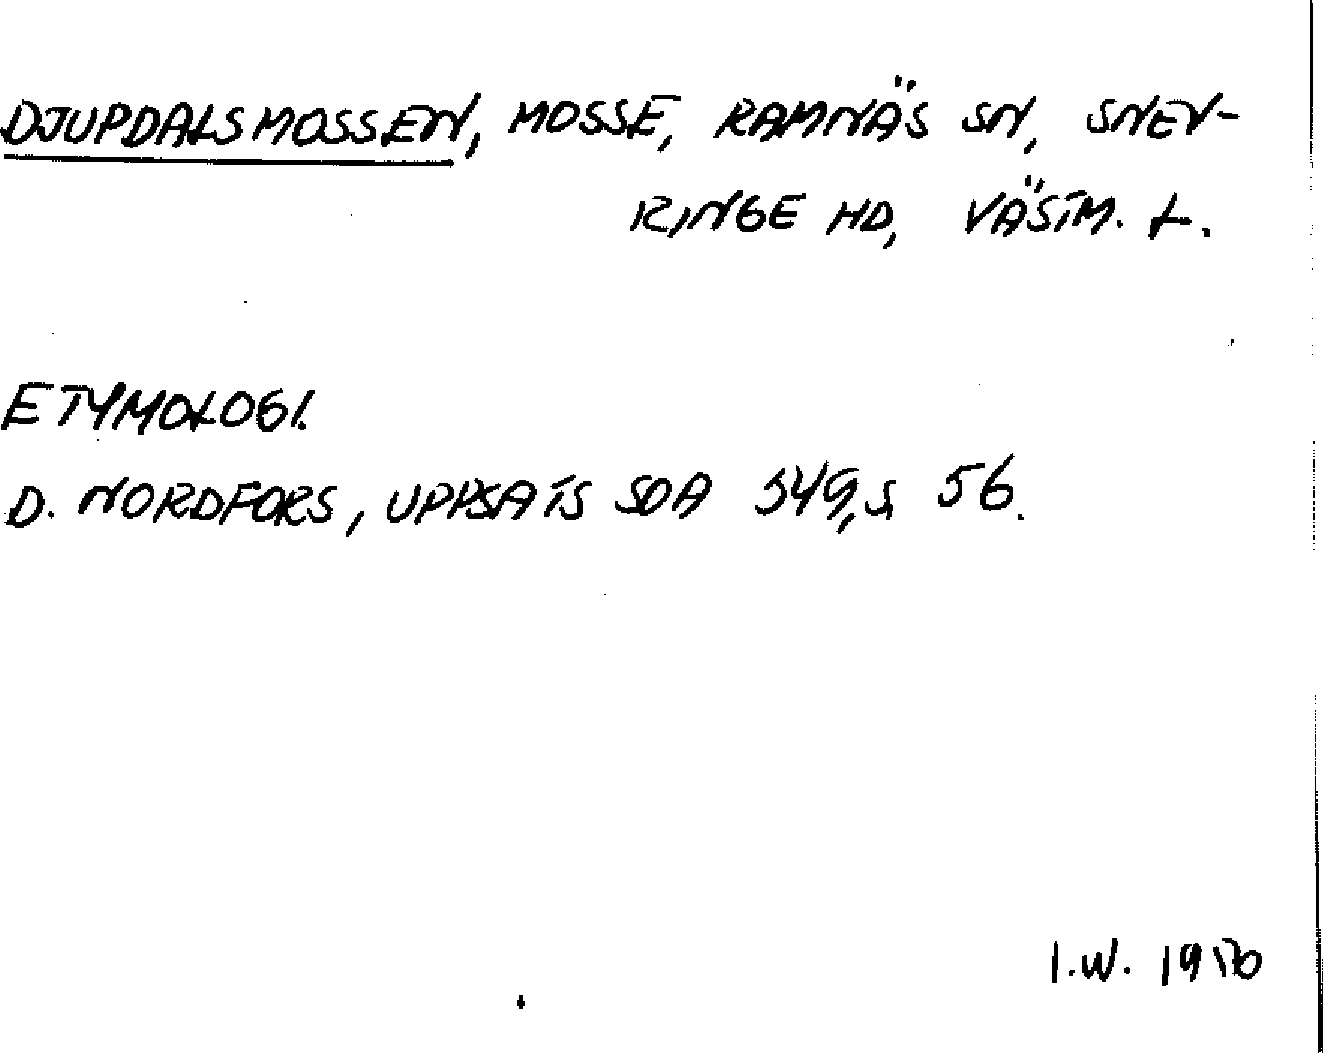 DJUPDALSMOSSEN, MOSSE, RAMNÄS SN, SNEV-
RINGE HD, VÄSTM. L.
ETYMOLOGI.
D. NORDFORS, UPPSATS SOA 349, S 56.
I.W.